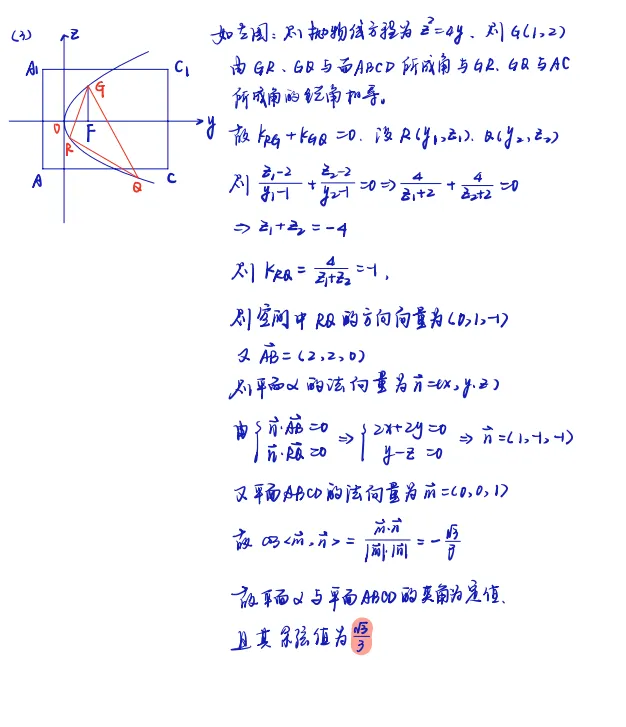 (3)
z
A₁
C₁
G
O
F
y
R
A
Q
C
如左图:则抛物线方程为z²=4y,则G(1,2)
由GR、GQ与面ABCD所成角与GR、GQ与AC
所成角的锐角相等。
故k_RG+k_GQ=0.设R(y₁,z₁)、Q(y₂,z₂)
则 (z₁-2)/(y₁-1) + (z₂-2)/(y₂-1) =0⇒ 4/(z₁+2) + 4/(z₂+2) =0
⇒ z₁+z₂=-4
则k_RQ= 4/(z₁+z₂) =-1,
则空间中RQ的方向向量为(0,1,-1)
又AB⃗=(2,2,0)
则平面α的法向量为n⃗=(x,y,z)
由{n⃗·AB⃗=0 n⃗·RQ⃗=0 ⇒ {2x+2y=0 y-z=0 ⇒ n⃗=(1,-1,-1)
又平面ABCD的法向量为m⃗=(0,0,1)
故cos<m⃗,n⃗>= m⃗·n⃗/(|m⃗|·|n⃗|) =-√3/3
故平面α与平面ABCD的夹角为定值.
且其余弦值为√3/3